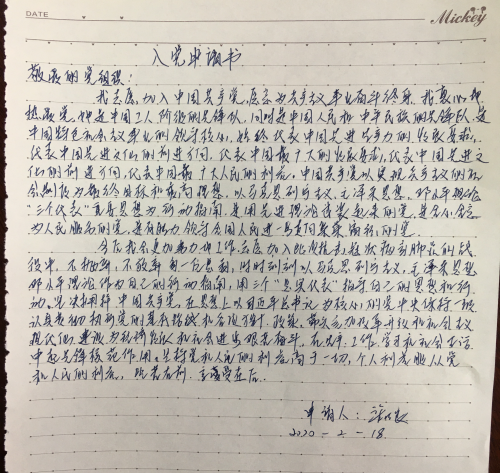 DATE
Mickey
入党申请书
敬爱的党组织：
我志愿加入中国共产党，愿意为共产主义事业奋斗终身。我衷心地
热爱党，她是中国工人阶级的先锋队，同时是中国人民和中华民族的先锋队，是
中国特色社会主义事业的领导核心，始终代表中国先进生产力的发展要求，
代表中国先进文化的前进方向，代表中国最广大人民的根本利益。
文化的前进方向，代表中国最广大人民的利益，中国共产党以实现共产主义的社
会制度为最终目标和最高理想，以马克思列宁主义、毛泽东思想、邓小平理论
“三个代表”重要思想为行动指南，是用先进理论武装起来的党，是全心全意
为人民服务的党，是有能力领导全国人民进一步走向繁荣富强的党。
今后我会更加努力地工作，
役中，不怕，不放弃，时时刻刻以马克思列宁主义、毛泽东思想
邓小平理论作为自己的行动指南，用三个“代表”指导自己的思想和行
动。坚决拥护中国共产党，在思想上以习近平总书记为核心的党中央保持一致
认真贯彻执行党的基本路线和各项方针、政策，带头参加改革开放和社会主义
现代化建设，为经济发展和社会进步艰苦奋斗，在生产、工作、学习和社会生活
中起先锋模范作用。坚持党和人民的利益高于一切，个人利益服从党
和人民的利益，吃苦在前，享受在后。
申请人：
2020-2-18